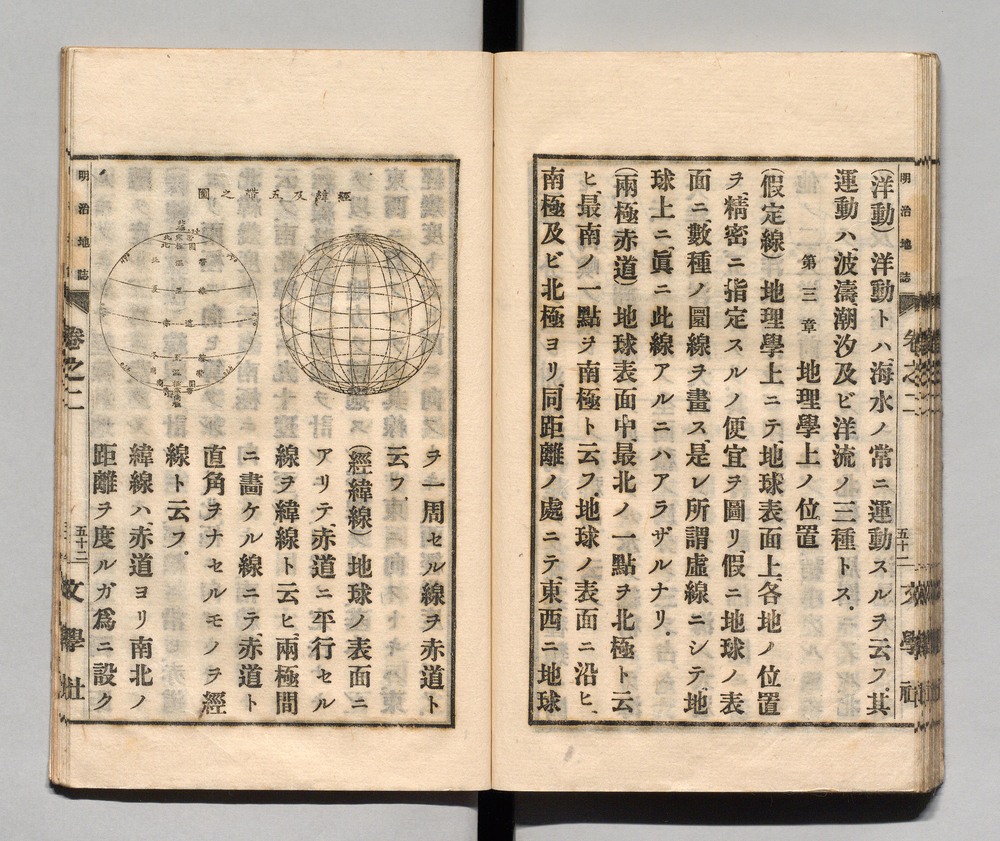 明治地誌
卷之二
五十二
文學社
(洋動)洋動トハ、海水ノ常ニ運動スルヲ云フ。其
運動ハ、波濤、潮汐及ビ洋流ノ三種トス。
第三章　地理學上ノ位置
(假定線)地理學上ニテ、地球表面上、各地ノ位置
ヲ、精密ニ指定スルノ便宜ヲ圖リ、假ニ地球ノ表
面ニ、數種ノ圜線ヲ畫ス、是レ所謂虛線ニシテ、地
球上ニ、眞ニ此線アルニハアラザルナリ。
(兩極赤道)地球表面中、最北ノ一點ヲ北極ト云
ヒ、最南ノ一點ヲ南極ト云フ、地球ノ表面ニ沿ヒ、
南極及ビ北極ヨリ、同距離ノ處ニテ、東西ニ地球
經緯及五帶之圖
ヲ一周セル線ヲ赤道ト
云フ。
(經緯線)地球ノ表面ニ
アリテ、赤道ニ平行セル
線ヲ緯線ト云ヒ、兩極間
ニ畫ケル線ニテ、赤道ト
直角ヲナセルモノヲ經
線ト云フ。
緯線ハ、赤道ヨリ南北ノ
距離ヲ度ルガ爲ニ設ク
明治地誌
卷之二
五十二
文學社